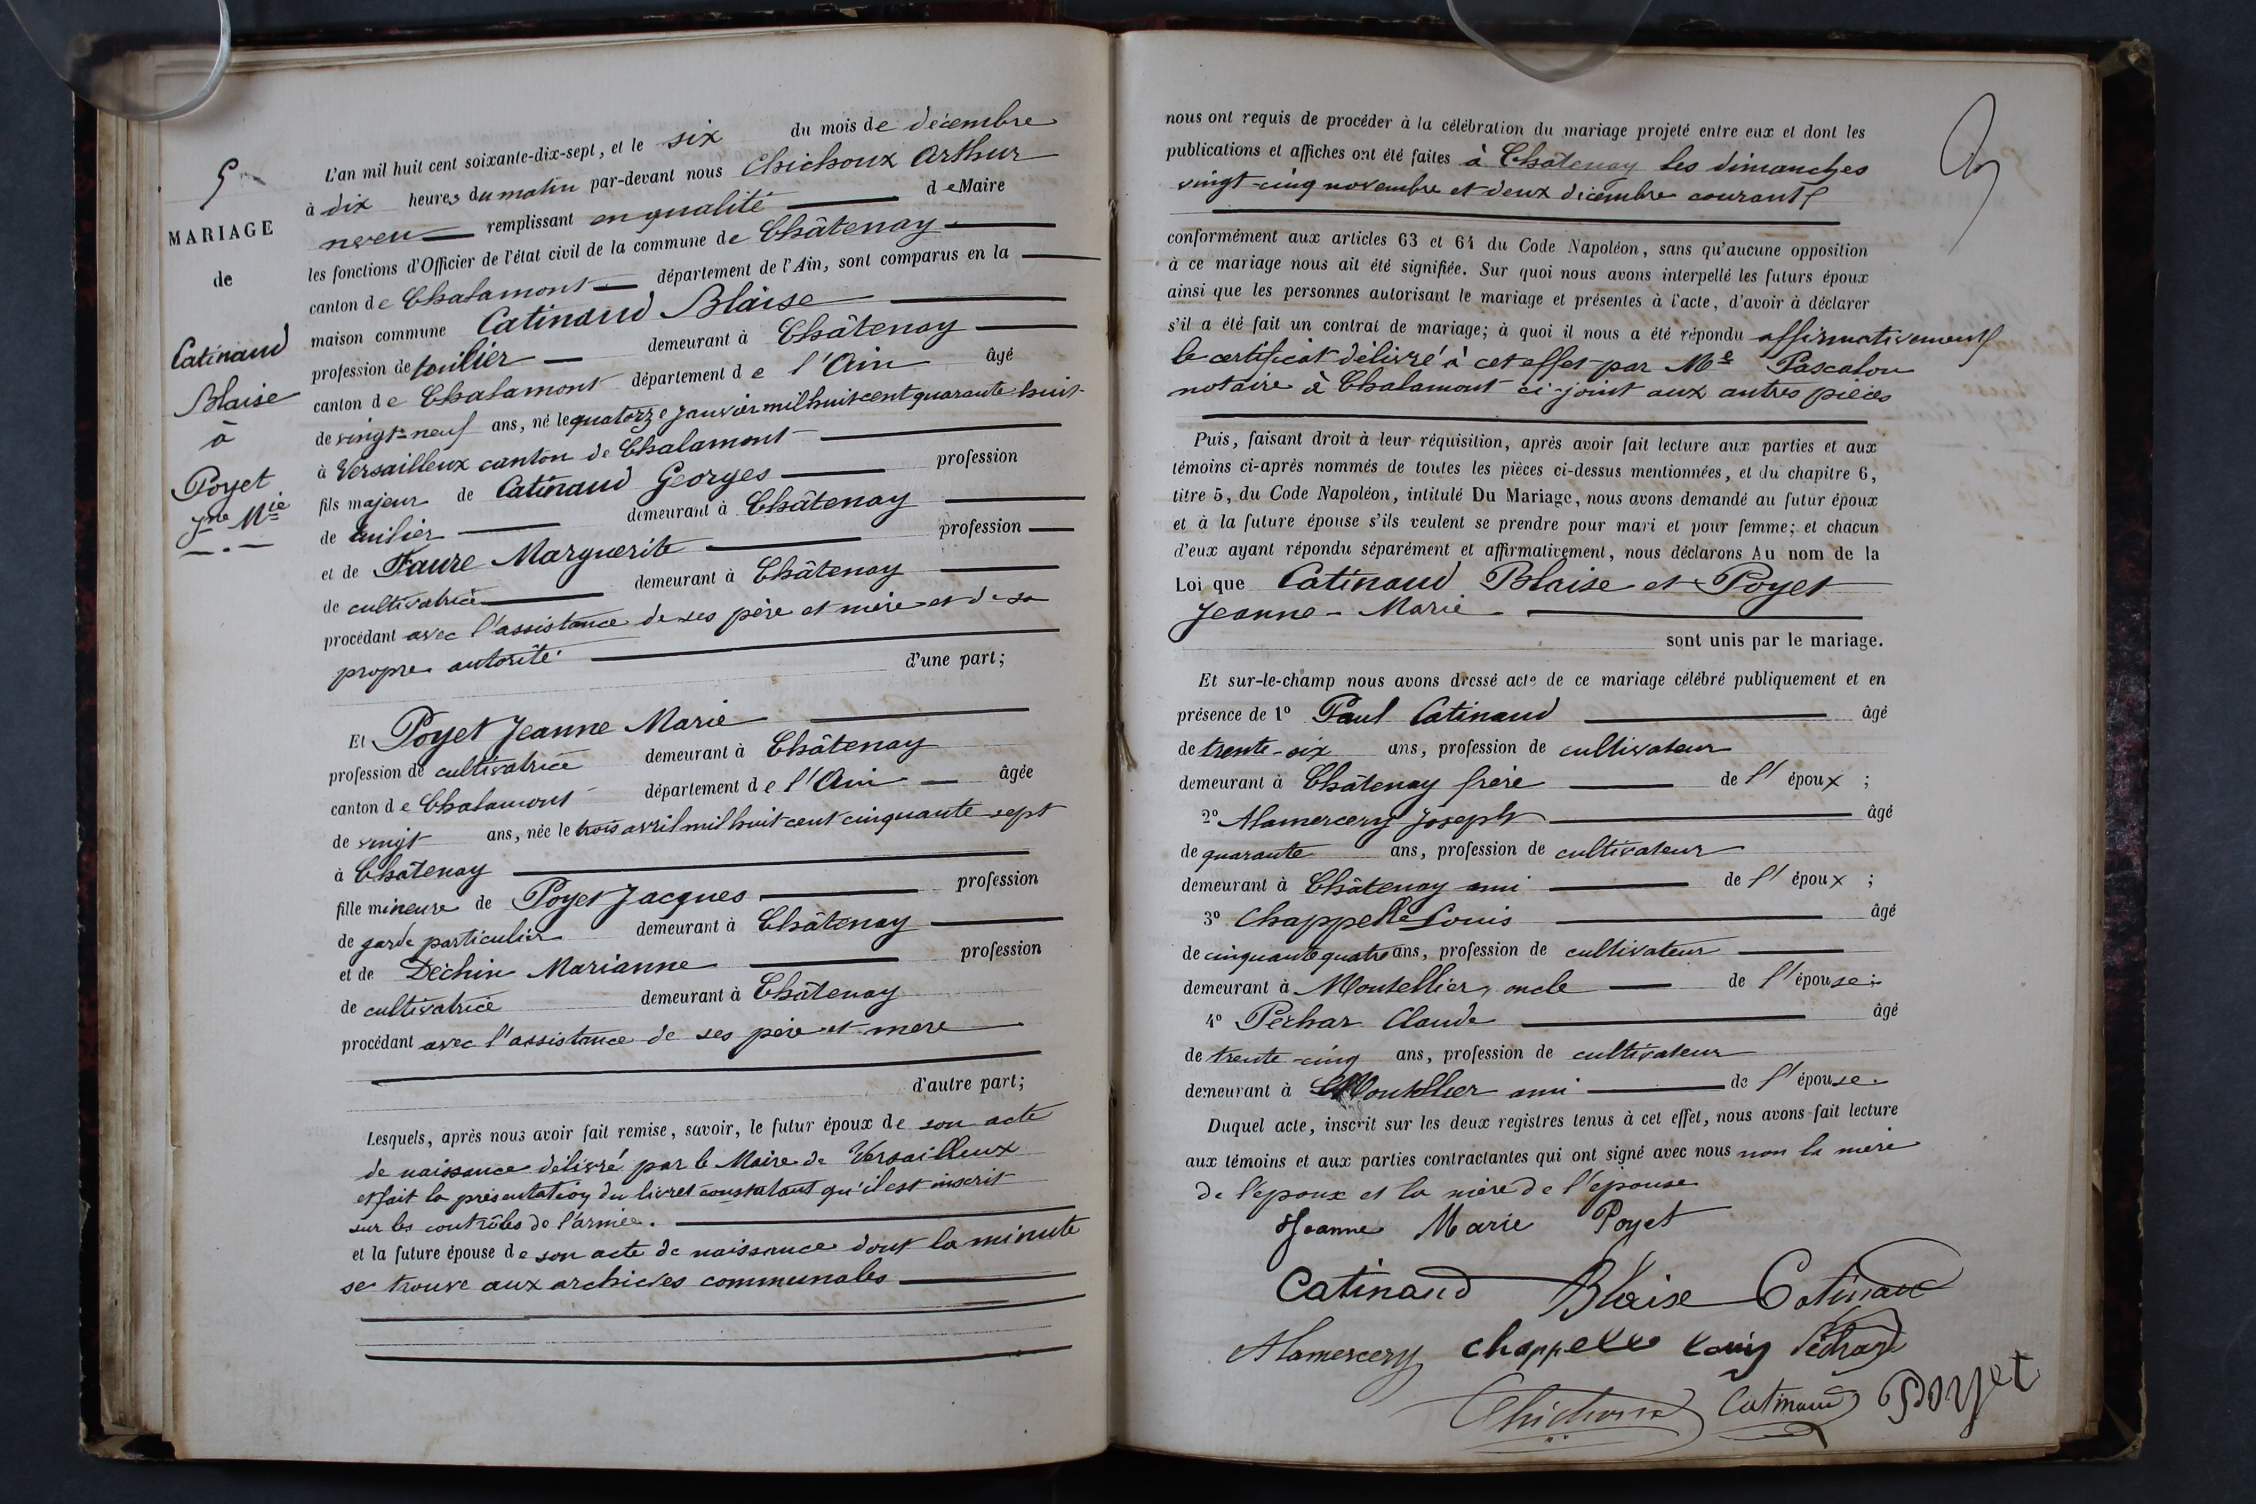 5
MARIAGE
de
Catinaud
Blaise
à
Poyet
Jne Mie
L'an mil huit cent soixante-dix-sept, et le six du mois de décembre
à dix heures du matin par-devant nous Chichoux Arthur
remplissant en qualité de Maire
les fonctions d'Officier de l'état civil de la commune de Châtenay
canton de Chalamont département de l'Ain, sont comparus en la
maison commune Catinaud Blaise
profession de tuilier demeurant à Châtenay
canton de Chalamont département de l'Ain âgé
de vingt-neuf ans, né le quatorze janvier mil huit cent quarante huit
à Versailleux canton de Chalamont
fils majeur de Catinaud Georges profession
de tuilier demeurant à Châtenay
et de Faure Marguerite profession
de cultivatrice demeurant à Châtenay
procédant avec l'assistance de ses père et mère et de sa
propre autorité
d'une part;
Et Poyet Jeanne Marie
profession de cultivatrice demeurant à Châtenay
canton de Chalamont département de l'Ain âgée
de vingt ans, née le trois avril mil huit cent cinquante sept
à Châtenay
fille mineure de Poyet Jacques profession
de garde particulier demeurant à Châtenay
et de Déchin Marianne profession
de cultivatrice demeurant à Châtenay
procédant avec l'assistance de ses père et mère
d'autre part;
Lesquels, après nous avoir fait remise, savoir, le futur époux de son acte
de naissance délivré par le Maire de Versailleux
et fait la présentation du livret constatant qu'il est inscrit
sur les contrôles de l'armée.
et la future épouse de son acte de naissance dont la minute
se trouve aux archives communales
nous ont requis de procéder à la célébration du mariage projeté entre eux et dont les
publications et affiches ont été faites à Châtenay les dimanches
vingt-cinq novembre et deux décembre courant
conformément aux articles 63 et 64 du Code Napoléon, sans qu'aucune opposition
à ce mariage nous ait été signifiée. Sur quoi nous avons interpellé les futurs époux
ainsi que les personnes autorisant le mariage et présentes à l'acte, d'avoir à déclarer
s'il a été fait un contrat de mariage; à quoi il nous a été répondu affirmativement
le certificat délivré à cet effet par Me Pascalon
notaire à Chalamont ci-joint aux autres pièces
Puis, faisant droit à leur réquisition, après avoir fait lecture aux parties et aux
témoins ci-après nommés de toutes les pièces ci-dessus mentionnées, et du chapitre 6,
titre 5, du Code Napoléon, intitulé Du Mariage, nous avons demandé au futur époux
et à la future épouse s'ils veulent se prendre pour mari et pour femme; et chacun
d'eux ayant répondu séparément et affirmativement, nous déclarons Au nom de la
Loi que Catinaud Blaise et Poyet
Jeanne-Marie
sont unis par le mariage.
Et sur-le-champ nous avons dressé acte de ce mariage célébré publiquement et en
présence de 1º Paul Catinaud âgé
de trente-six ans, profession de cultivateur
demeurant à Châtenay frère de l'époux;
2º Alamercery Joseph âgé
de quarante ans, profession de cultivateur
demeurant à Châtenay ami de l'époux;
3º Chappelle Louis âgé
de cinquante quatre ans, profession de cultivateur
demeurant à Montellier, oncle de l'épouse;
4º Péchar Claude âgé
de trente-cinq ans, profession de cultivateur
demeurant à Montellier ami de l'épouse.
Duquel acte, inscrit sur les deux registres tenus à cet effet, nous avons fait lecture
aux témoins et aux parties contractantes qui ont signé avec nous non la mère
de l'époux et la mère de l'épouse
Jeanne Marie Poyet
Catinaud Blaise Catinaud
Alamercery chappelle Louis Péchard
Chichoux Catinaud Poyet